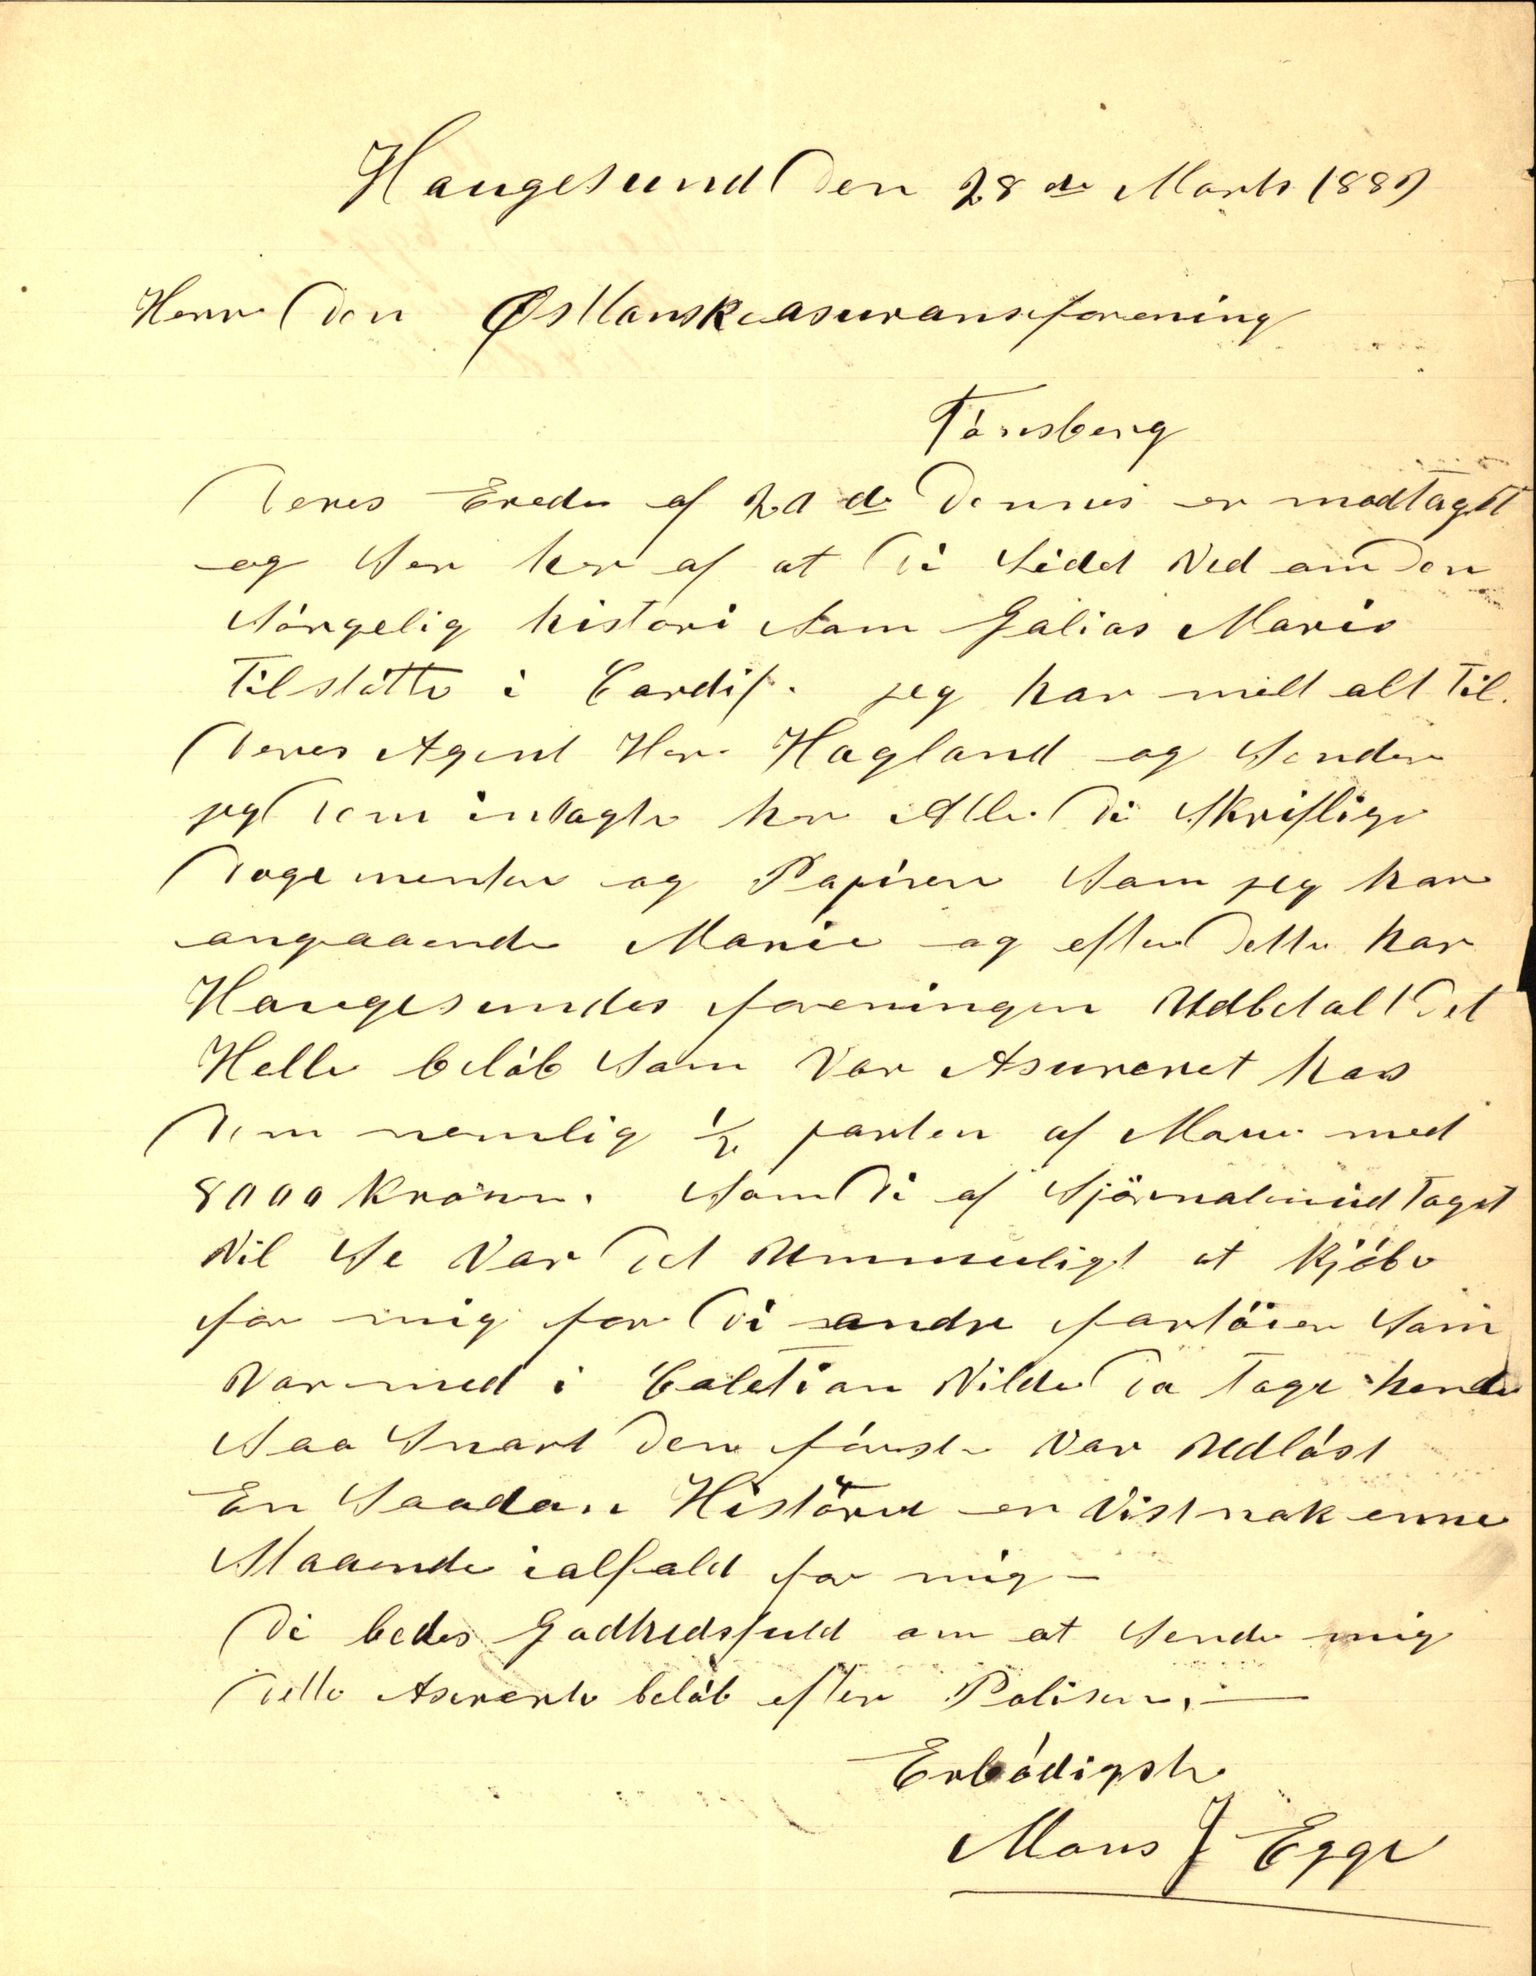 Haugesund Den 28 de Marts 1889
Herr Den Østlanskeasuransforening
Tönsberg
Deres Erede af 21 de Dennes er modtaget
og Ser her af at Di Sidd Ved om Den
Sörgelig histori Som Galias Marie
Tilstötte i Cardif. jeg har melt alt Til.
Deres Agent Her Hagland og Sender
jeg Dem inlagte her Alle Di Skriflige
Dogementer og Papirer Som jeg har
angaaende Marie og efter Dette har
Haugesundes foreningen Udbetalt Det
Helle belöb Som Var Asureret hos
Dem nemlig 1/2 parten af Marie med
8000 Kroner. Som Di af Sjörnalenud Taget
Vil Se Var Det Ummueligt at Kjöbe
for mig for Di andre fartöier Som
Var med i Coletian Vilde Da Tage hende
Saa Snart Den förste Var Udlöst
En Saadan Historie er Vist nok enne
Staaende ialfald for mig —
Di bedes Godhedsfuld om at Sende mig
Dette Asurerte belöb efter Polisen. —
Erbödigste
Mons J Egge